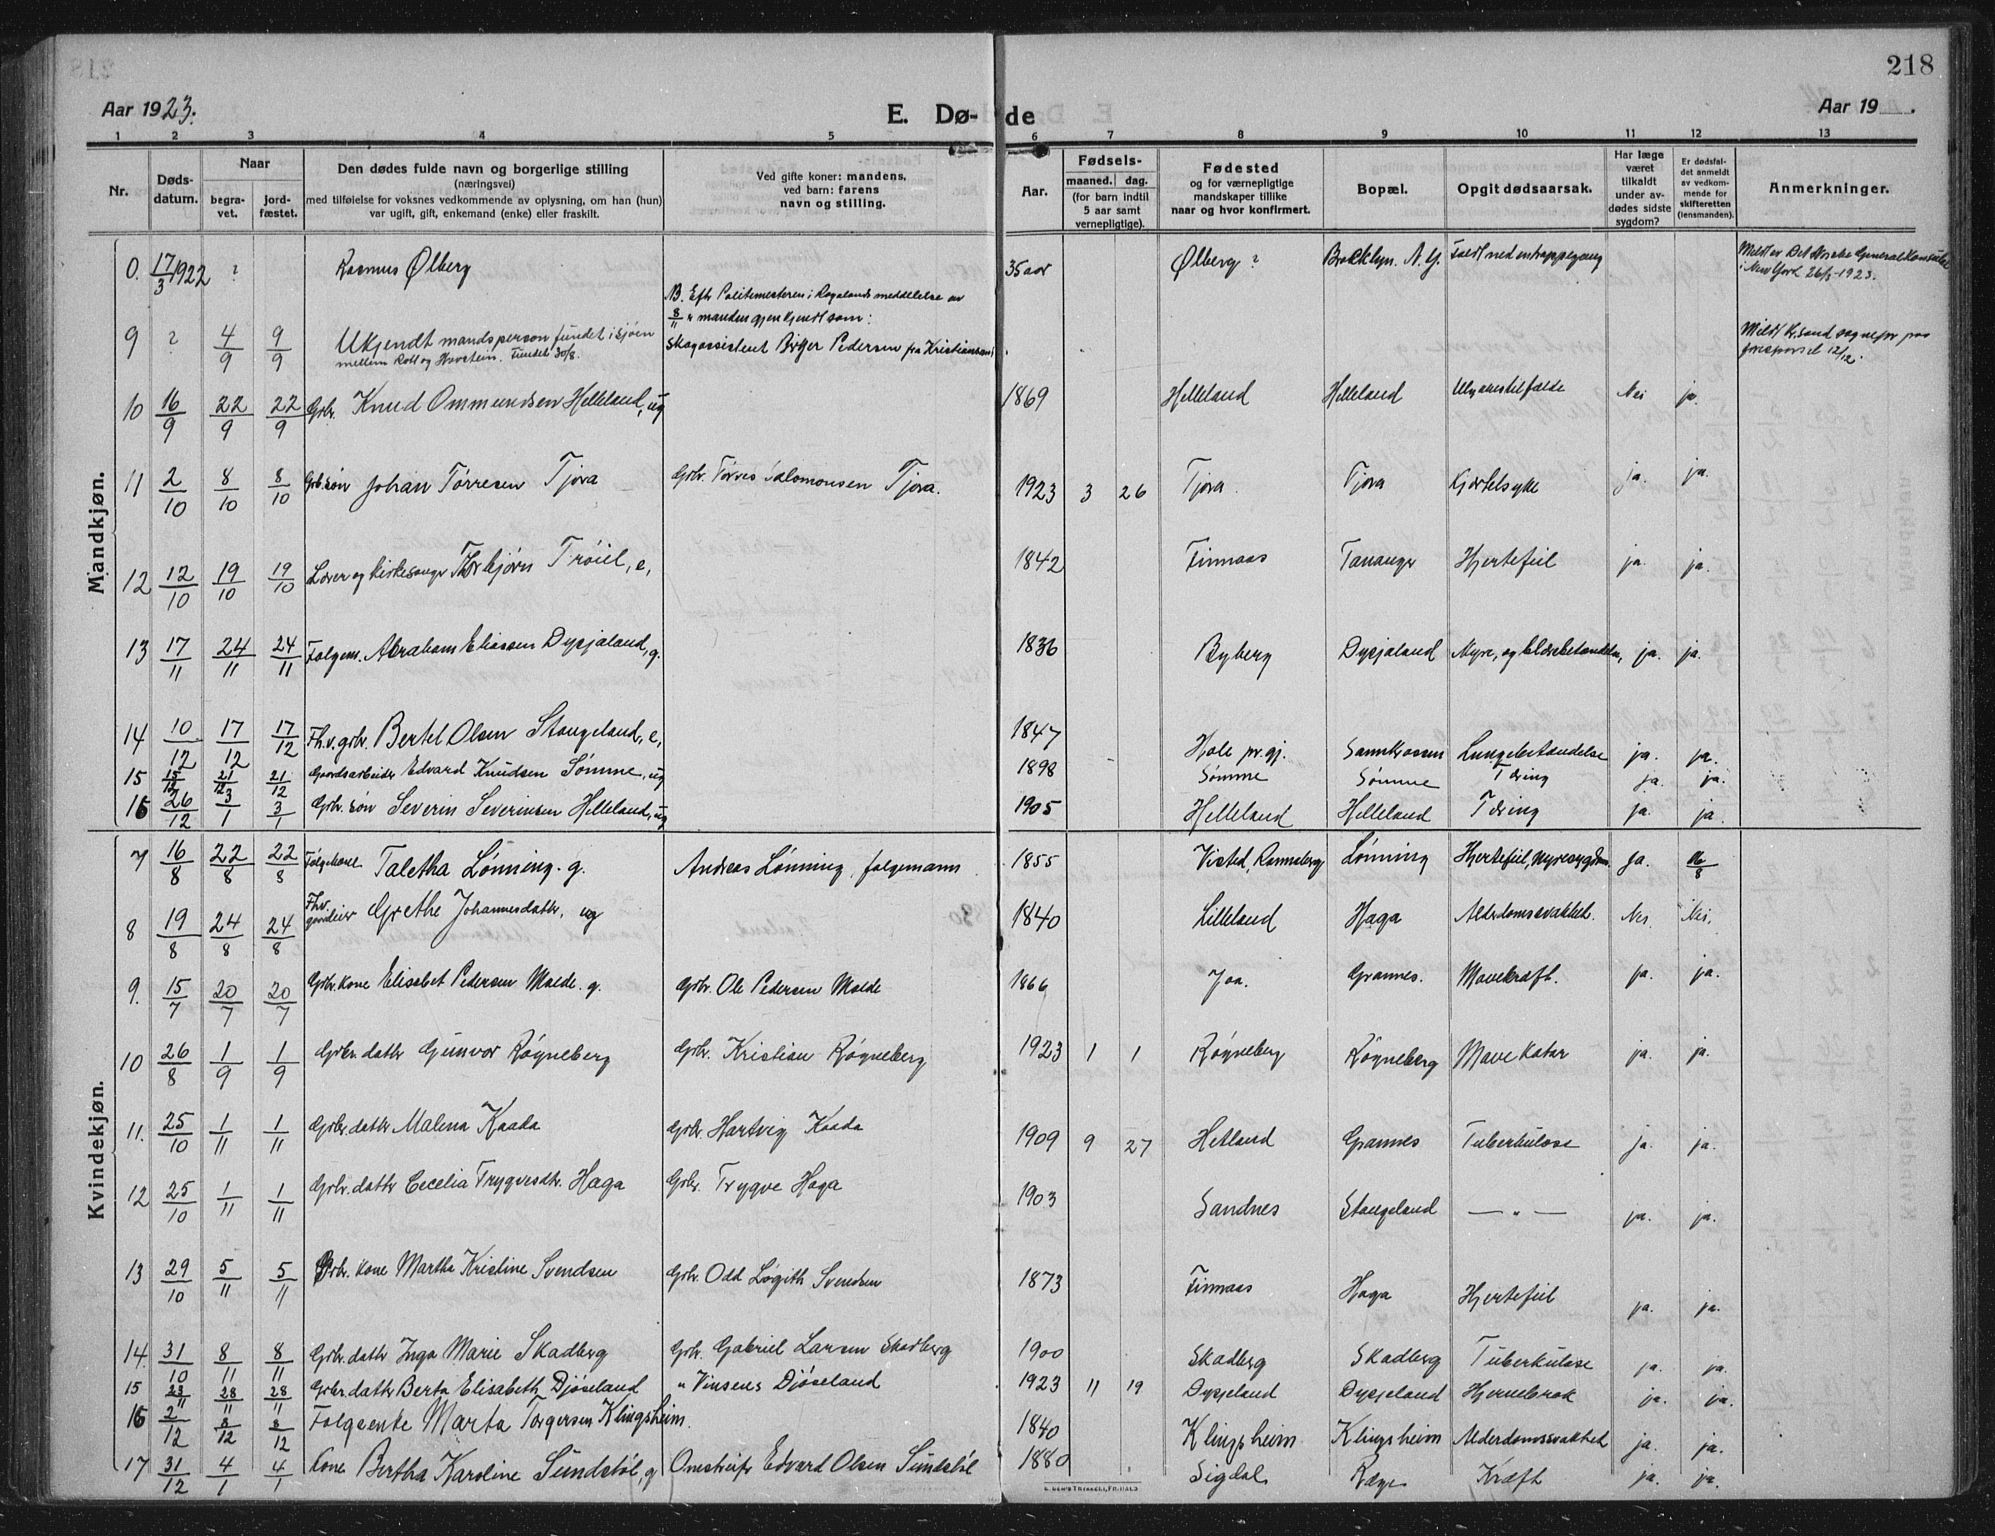 218
Aar 1923.
E. Dø- de
Aar 19 .
1 2 3 4 5 6 7 8 9 10 11 12 13
Nr.
Døds-datum.
Naar
begra-vet.
jord-fæstet.
Den dødes fulde navn og borgerlige stilling
(næringsvei)
med tilføielse for voksnes vedkommende av oplysning, om han (hun)
var ugift, gift, enkemand (enke) eller fraskilt.
Ved gifte koner: mandens,
ved barn: farens
navn og stilling.
Aar.
Fødsels-
maaned. dag.
(for barn indtil
5 aar samt
vernepligtige).
Fødested
og for værnepligtige
mandskaper tillike
naar og hvor konfirmert.
Bopæl.
Opgit dødsaarsak.
Har læge
været
tilkaldt
under av-
dødes sidste
sygdom?
Er dødsfal-
det anmeldt
av vedkom-
mende for
skifteretten
(lensmanden).
Anmerkninger.
Mandkjøn.
0. 17/3 1922 ? Rasmus Ølberg 35 aar Ølberg? Brokklyn. N.Y. Faldt ned en trappegang Meldt av Det Norske Generalkonsulat
i New York 26/5-1923.
NB. Efter Politimesteren i Rogalands meddelelse av
8/11 er manden gjenkjendt som:
9 ? 4/9 9/9 Ukjendt mandsperson fundet i sjøen Skogassistent Birger Pedersen fra Kristiansand. Meldt Kr.sand sogнepr. paa
mellem Rott og Hovstein. Fundet 30/8. forespørsel 12/12.
10 16/9 22/9 22/9 Grbr. Knud Ommundsen Helleland, ug 1869 Helleland Helleland Ulykkestilfælde Nei ja.
11 2/10 8/10 8/10 Grb. søn Johan Tørresen Tjora Grbr. Tørres Salomonsen Tjora. 1923 3 26 Tjora. Tjora Kjertelsyke ja. ja.
12 12/10 19/10 19/10 Lærer og kirkesanger Thorbjørn Trøiel, e, 1842 Finnaas Tananger Hjertefeil ja. ja.
13 17/11 24/11 24/11 Følgem. Abraham Eliassen Dysjaland, g. 1836 Byberg Dysjaland Nyre, og blærebetændelse, ja. ja.
14 10/12 17/12 17/12 Fh.v. grbr. Bertel Olsen Stangeland, e, 1847 Hole pr.gj. Sannkrossen Lungebetændelse ja. ja.
15 15/12 21/12 21/12 Gaardsarbeider Edvard Knudsen Sømme, ug 1898 Sømme Sømme Tæring ja. ja.
16 26/12 3/1 3/1 Grbr. søn Severin Severinsen Helleland, ug 1905 Helleland Helleland Tæring ja. ja.
Kvindekjøn.
7 16/8 22/8 22/8 Følgekone Taletha Lønning. g. Andreas Lønning, følgemann 1855 Visted, Rannaberg Lønning Hjertefeil, nyresygdom ja. 16/8
8 19/8 24/8 24/8 Fhv. gaardeier Grethe Johannesdatter, ug 1840 Lilleland Haga Alderdomssvakhet. Nei. Nei.
9. 15/7 20/7 20/7 Grbr. kone Elisabet Pedersen Molde. g. Grbr. Ole Pedersen Molde 1866 Joa. Grannes. Mavekræft. ja. ja.
10 26/8 1/9 1/9 Grbr. datter Gunvor Røyneberg Grbr. Kristian Røyneberg 1923 1 1 Røyneberg Røyneberg Mave Katar ja. ja.
11. 25/10 1/11 1/11 Grbr. datter Malena Kaada Grbr. Hartvig Kaada 1909 9 27 Hetland Grannes Tuberkulose ja. ja.
12 25/10 1/11 1/11 Grbr. datter Cecelia Trygvesdtr. Haga Grbr. Trygve Haga 1903 Sandnes Stangeland — " — ja. ja.
13 29/10 5/11 5/11 Grbr. kone Martha Kristine Svendsen Grbr. Odd Løgith Svendsen 1873 Finnaas Haga Hjertefeil ja. ja.
14. 31/10 8/11 8/11 Grbr. datter Inga Marie Skadberg Grbr. Gabriel Larsen Skadberg 1900 Skadberg Skadberg Tuberkulose ja. ja.
15 23/11 28/11 28/11 Grbr. datter Berta Elisabeth Djøseland " Vinsens Djøseland 1923 11 19 Dysjeland Dysjeland Hjernebrok ja. ja.
16 2/12 8/12 8/12 Følgeenke Marta Torgersen Klingsheim. 1840 Klingsheim Klingsheim Alderdomssvakhet ja. ja.
17 31/12 4/1 4/1 Kone Bertha Karoline Sundstøl, g Edvard Olsen Sundstøl 1880 Sigdal Ræge Kræft ja. ja.